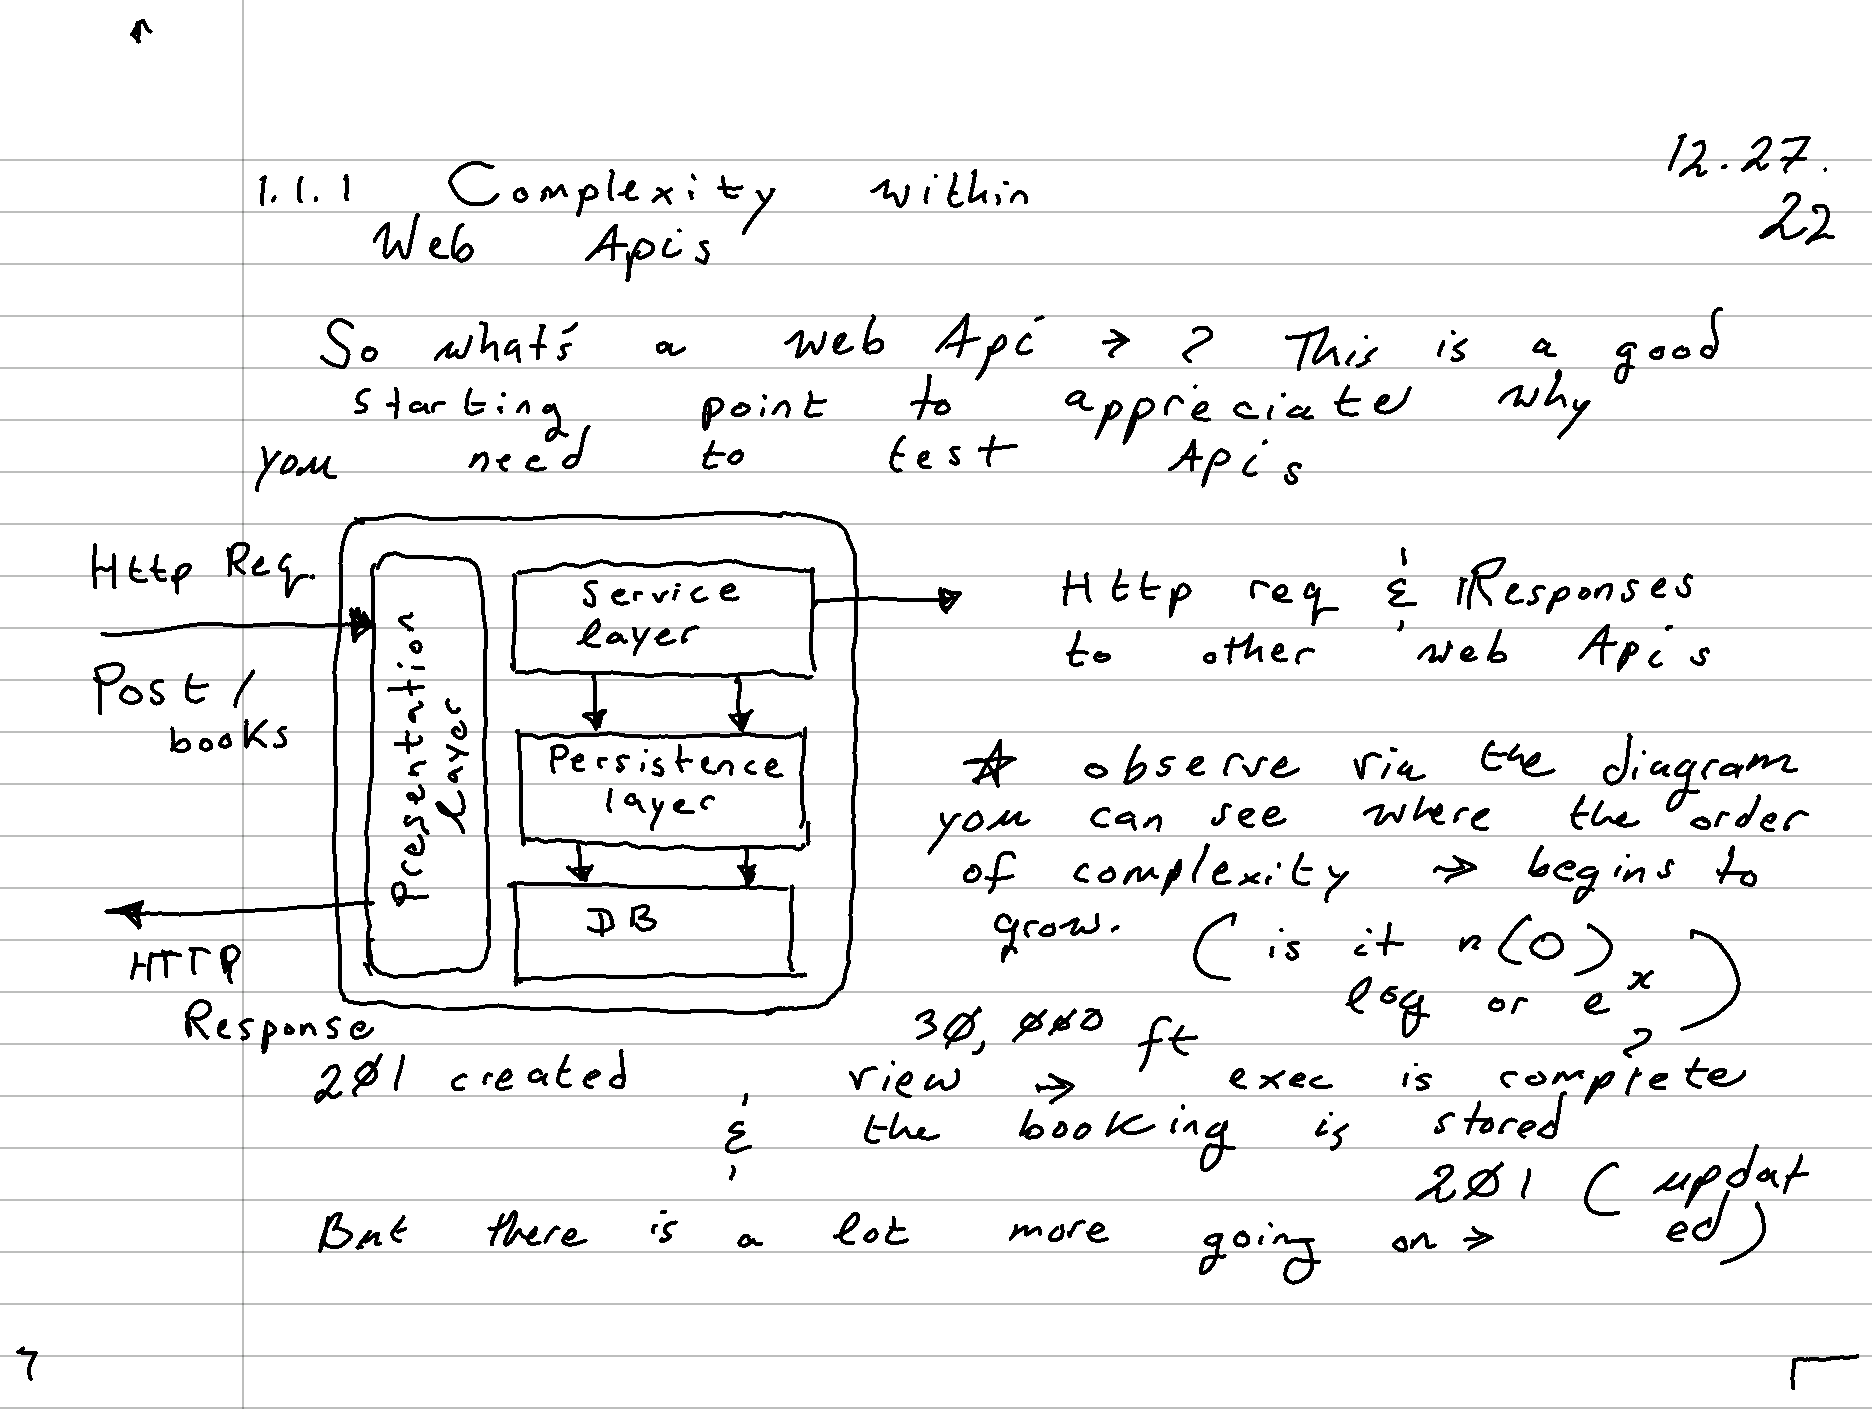 12.27.
22
1.1.1 Complexity within
Web Apis
So what's a web Api → ? This is a good
starting point to appreciate why
you need to test Apis
Http Req.
Post /
books
Presentation
layer
Service
layer
Persistence
layer
DB
HTTP
Response
201 created
Http req & Responses
to other web Apis
☆ observe via the diagram
you can see where the order
of complexity → begins to
grow. (is it n(0)
log or e^x)
?
30,000 ft
view → exec is complete
& the booking is stored
201 (updat
ed)
But there is a lot more going on →